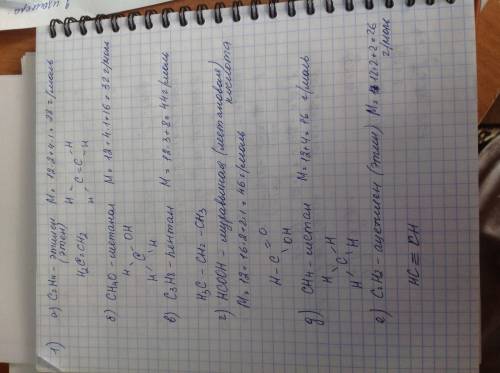 1) а) C₂H₄ - этилен M = 12·2+4·1 = 28 г/моль
(этен)
H₂C=CH₂
H H
C=C
H H
б) CH₄O - метанол M = 12+4·1+16 = 32 г/моль
H OH
C
H H
в) C₃H₈ - пентан M = 12·3+8 = 44 г/моль
H₃C - CH₂ - CH₃
г) HCOOH - муравьиная (метановая) кислота
M = 12+16·2+2·1 = 46 г/моль
H - C = O
OH
д) CH₄ - метан M = 12+4 = 16 г/моль
H H
C
H H
е) C₂H₂ - ацетилен (этин) M = 12·2+2 = 26 г/моль
HC ≡ CH